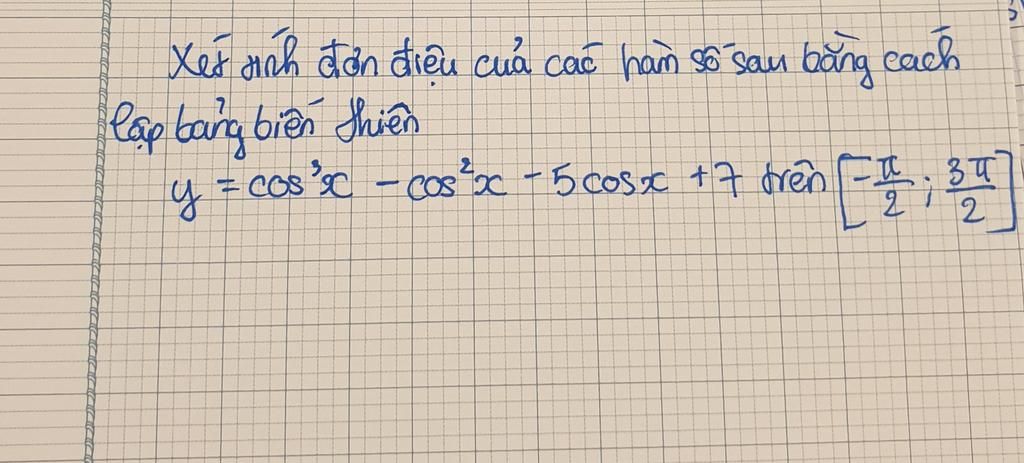 Xét tính đơn điệu của các hàm số sau bằng cách
lập bảng biến thiên
y = cos³x - cos²x - 5cosx + 7 trên [-π/2 ; 3π/2]